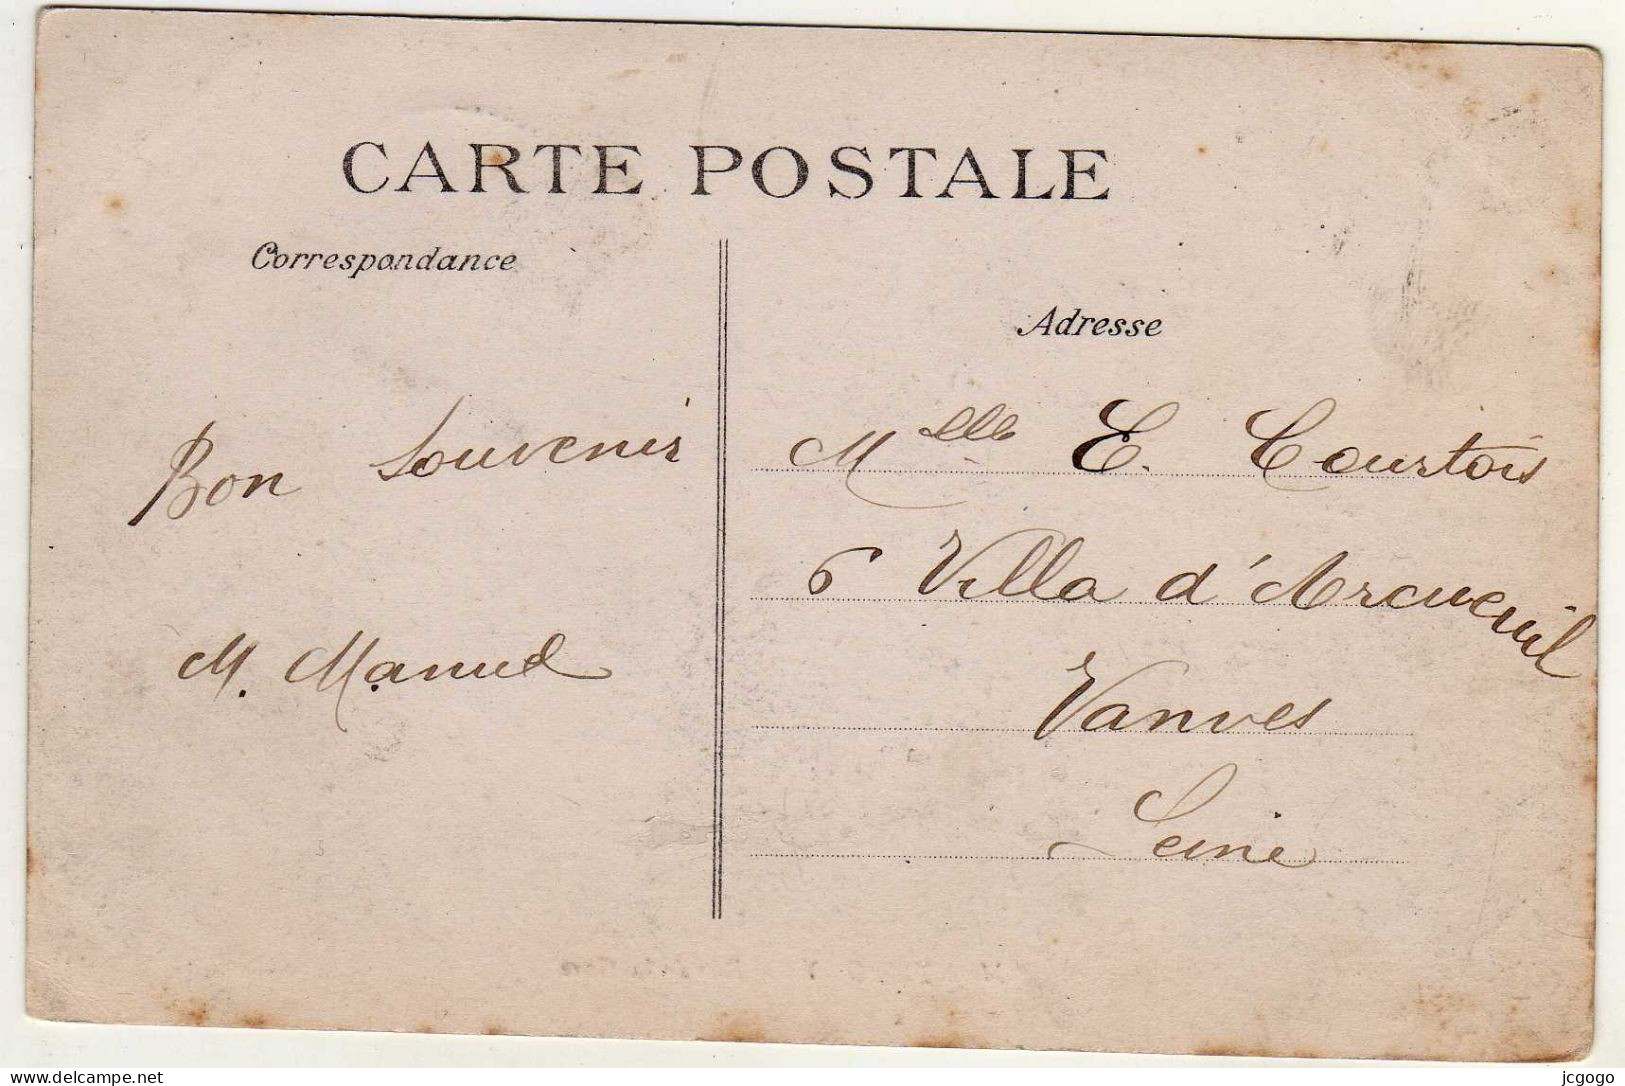 CARTE POSTALE
Correspondance
Adresse
Bon Souvenir
M. Manuel
Mlle E. Courtois
6 Villa d'Arcueuil
Vanves
Seine
delcampe.net
jcgogo